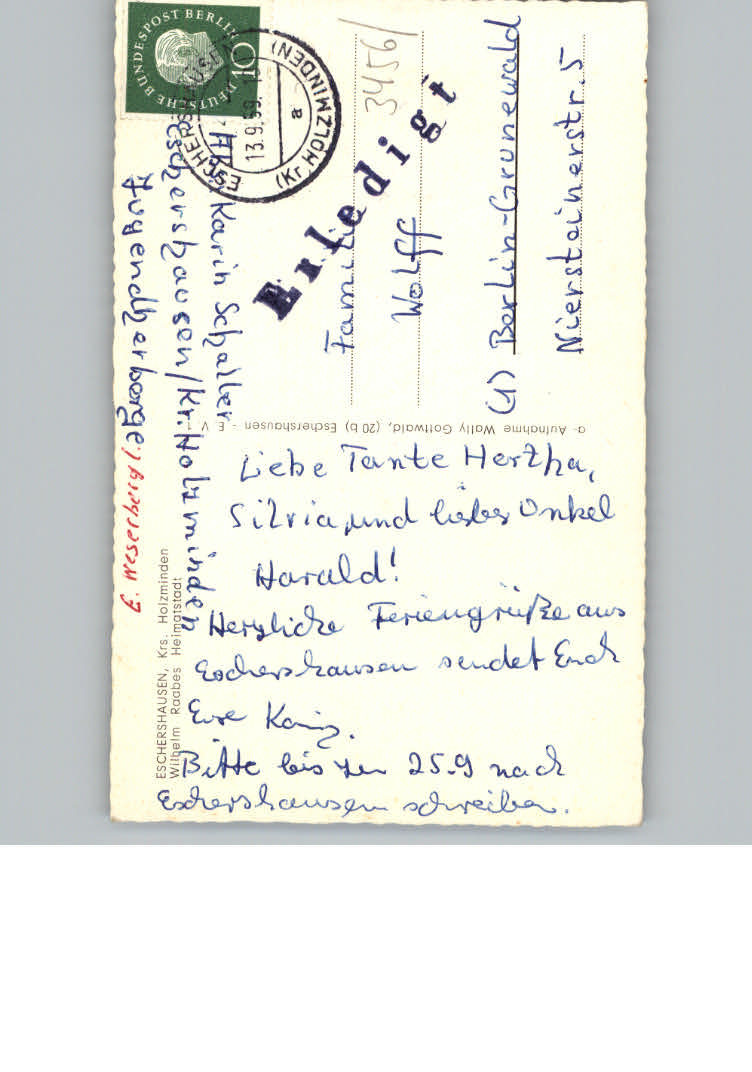 DEUTSCHE BUNDESPOST BERLIN
10
ESCHERSHAUSEN
(Kr HOLZMINDEN)
13.9.59
a
3456/
Erledigt
Familie
Wolff
(1) Berlin-Grunewald
Niersteinerstr. 5
Abs. Karin Schaller
Eschershausen/Kr. Holzminden
Jugendherberge
E. Weserberg l.
a- Aufnahme Wally Gottwald, (20 b) Eschershausen - E. V.
ESCHERSHAUSEN, Krs. Holzminden
Wilhelm Raabes Heimatstadt
Liebe Tante Hertha,
Silvia, und lieber Onkel
Harald!
Herzliche Feriengrüße aus
Eschershausen sendet Euch
Eure Karin.
Bitte bis zum 25.9 nach
Eschershausen schreiben.